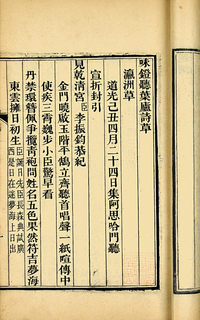 味鐙聽葉廬詩草
瀛洲草
道光己丑四月二十四日集阿思哈門聽
宣折封引
見乾清宮臣李振鈞恭紀
金門曉啟玉階平鵠立齊聽首唱聲一紙喧傳中
使疾三霄巍步小臣驚早看
丹禁環簪佩爭攬青袍問姓名五色果然符吉夢海
東雲擁日初生